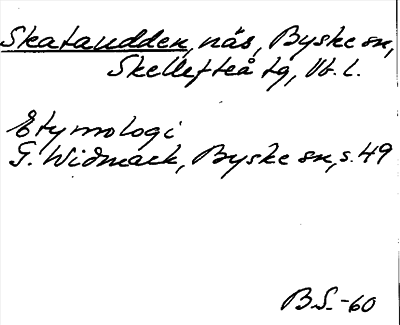 Skataudden, näs, Byske sn,
Skellefteå tg, Vb. l.
Etymologi
G. Widmark, Byske sn, s. 49
B.S.-60